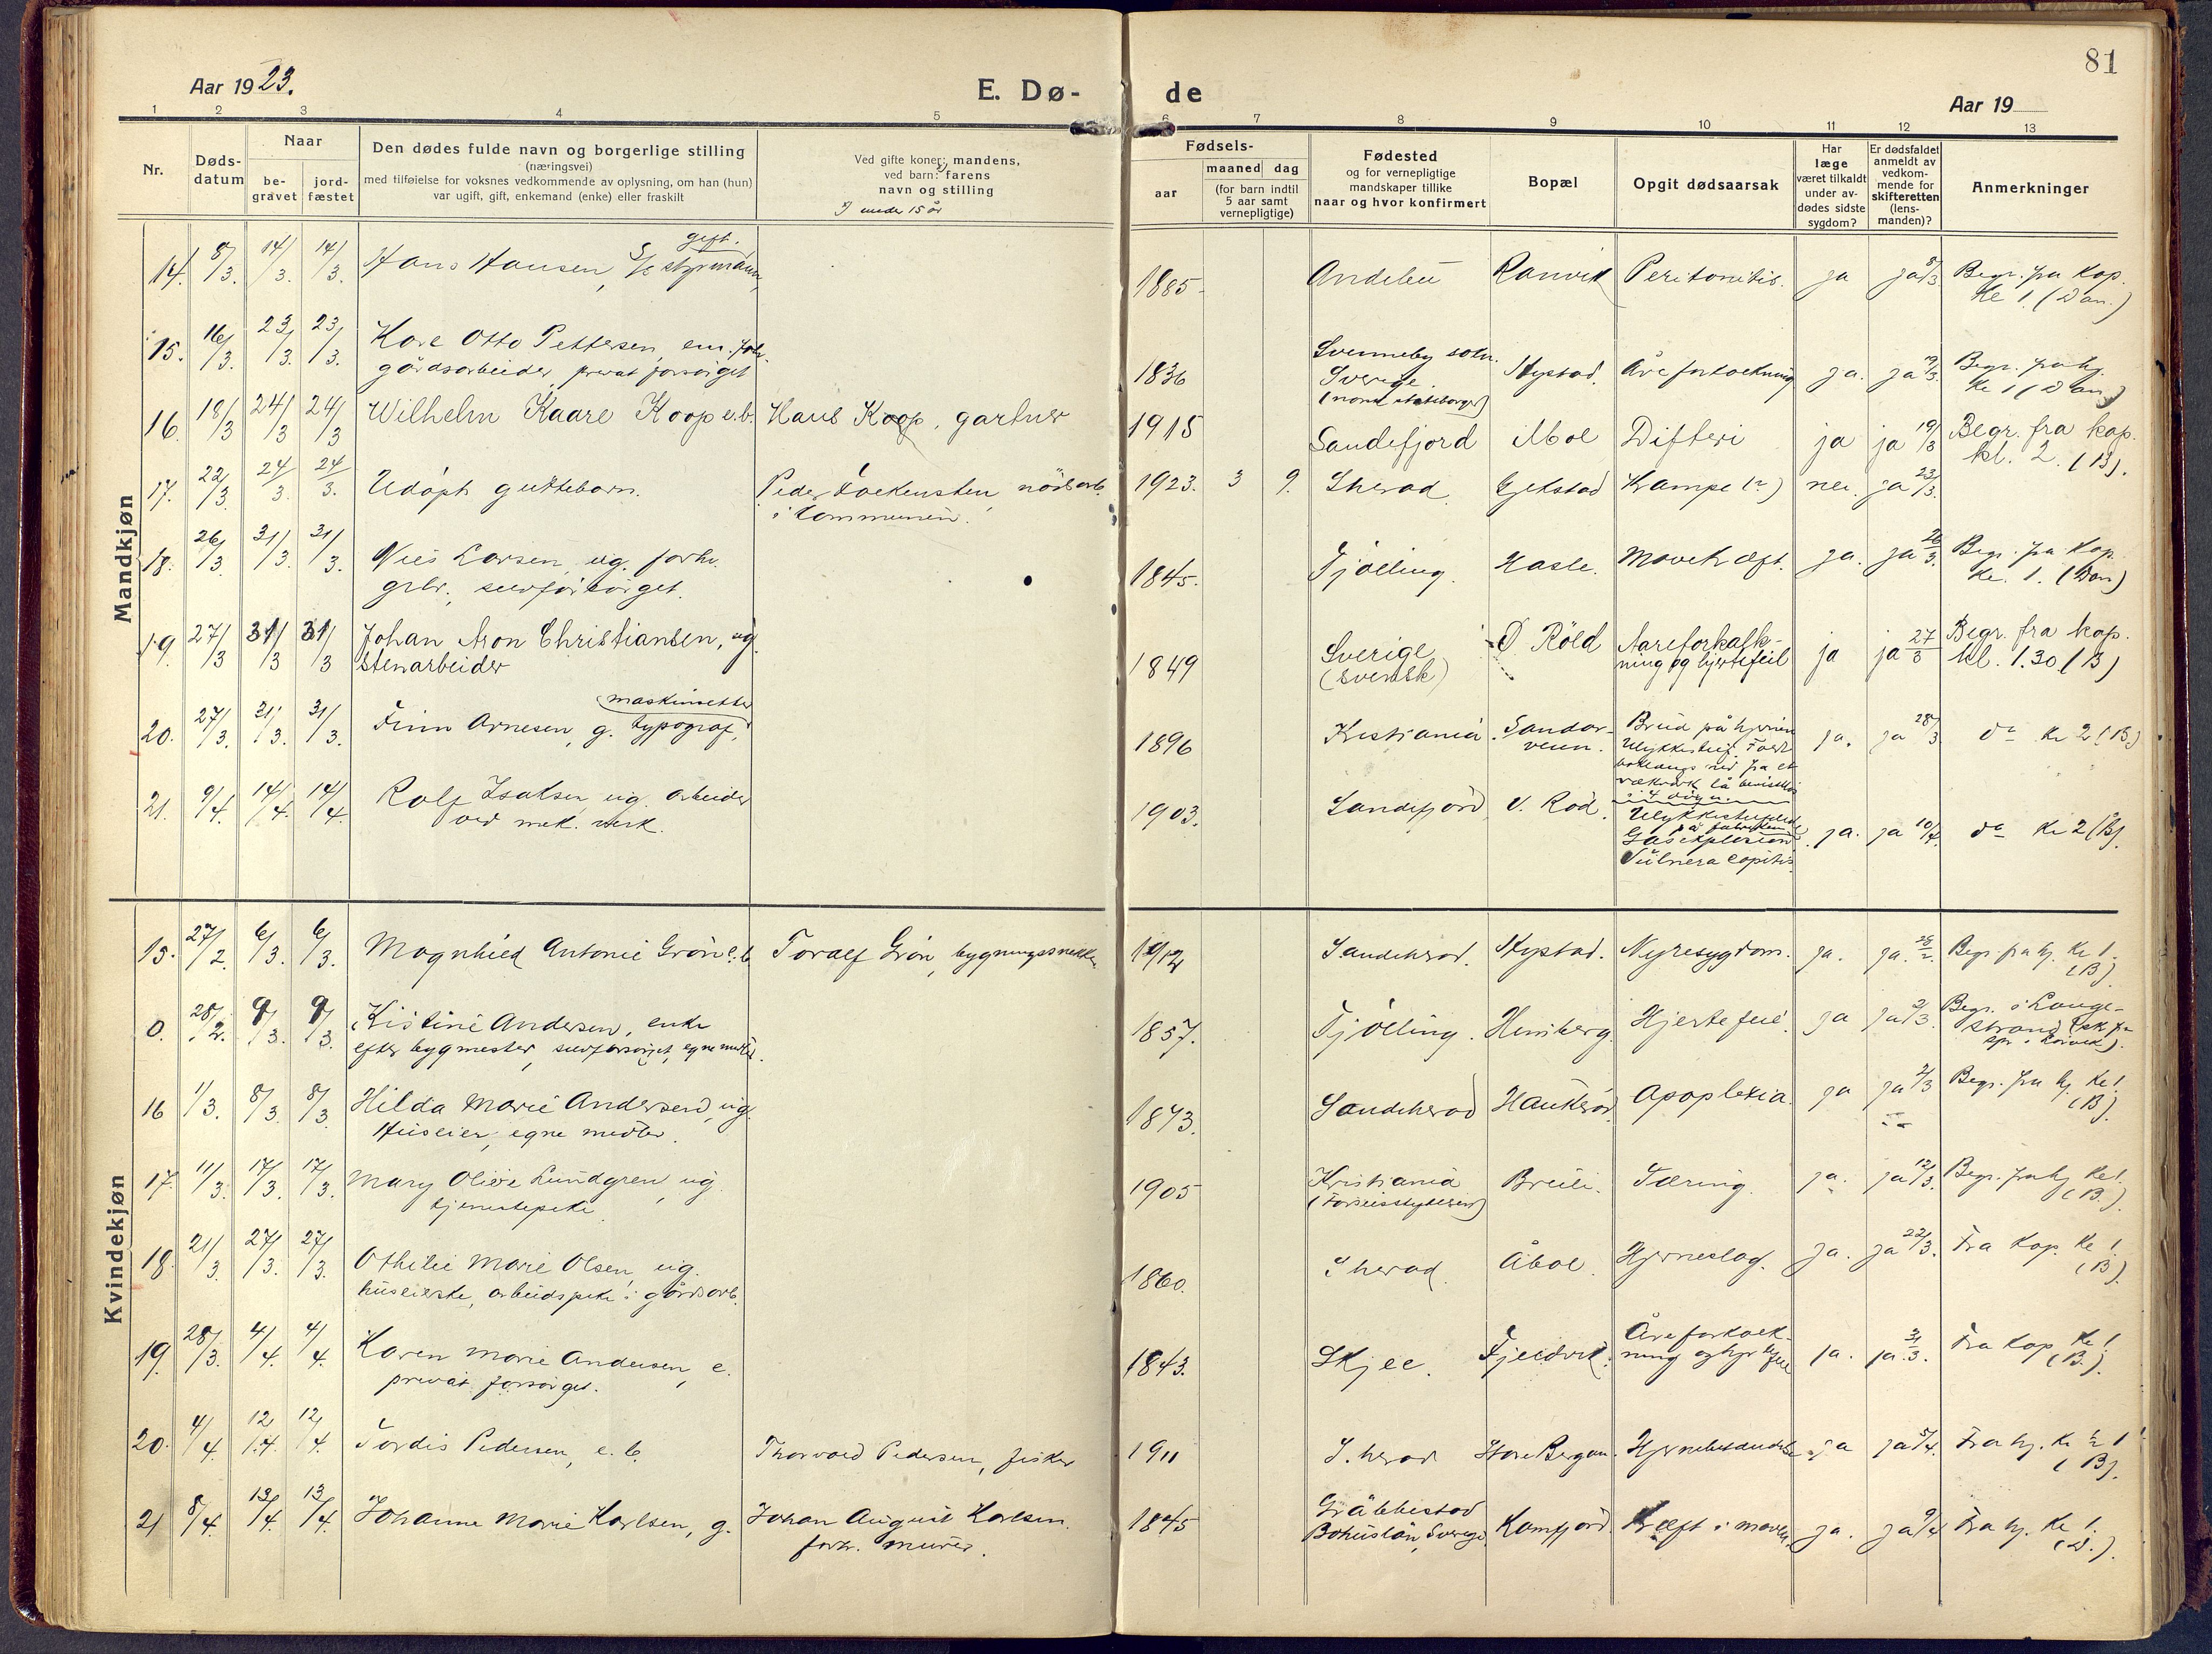 81
Aar 1923.
E. Dø-
de
Aar 19
1 2 3 4 5 6 7 8 9 10 11 12 13
Nr.
Døds-
datum
Naar
be-
gravet
jord-
fæstet
Den dødes fulde navn og borgerlige stilling
(næringsvei)
med tilføielse for voksnes vedkommende av oplysning, om han (hun)
var ugift, gift, enkemand (enke) eller fraskilt
Ved gifte koner: mandens,
ved barn: farens
navn og stilling
under 15 år
Fødsels-
aar
maaned dag
(for barn indtil
5 aar samt
vernepligtige)
Fødested
og for vernepligtige
mandskaper tillike
naar og hvor konfirmert
Bopæl
Opgit dødsaarsak
Har
læge
været tilkaldt
under av-
dødes sidste
sygdom?
Er dødsfaldet
anmeldt av
vedkom-
mende for
skifteretten
(lens-
manden)?
Anmerkninger
Mandkjøn
gift.
14. 8/3. 14/3. 14/3. Hans Hansen, styrmann, 1885 Andebu Ranvik Peritonitis. ja ja 8/3 Begr. fra kap.
kl 1. (Dan.)
15. 16/3. 23/3. 23/3. Karl Otto Pettersen, em.
gårdsarbeider, privat forsörget 1836 Svenneby sokn.
Sverige.
(norsk statsborger) Nystad. Åreforkalkning ja. ja 19/3. Begr. fra hj.
kl 1 (Dan)
16. 18/3 24/3 24/3 Wilhelm Kaare Koop e.b. Hans Koop, gartner 1915 Sandefjord Mo Difteri ja ja 19/3 Begr. fra kap.
kl. 2. (B).
17. 22/3. 24/3. 24/3. Udöpt guttebarn. Peder
i kommunen. 1923. 3 9. S herad Gjekstad Krampe (?) nei. ja 23/3.
18. 26/3. 31/3. 31/3. Nils Larsen, ug. forhv.
gbr., selvforsörget. 1845. Tjölling. Hasle. Mavekræft. ja. ja 26/3. Begr. fra kap.
kl. 1. (Dan)
19. 27/3 31/3 31/3 Johan Aron Christiansen, ug.
Stenarbeider 1849 Sverige
(svensk) Ø. Röld Aareforkalk-
ning og hjertefeil ja ja 27/3 Begr. fra kap.
kl. 1.30 (B)
maskinsetter
20. 27/3. 31/3. 31/3. Finn Arnesen, g. typograf, 1896 Kristiania. Sandar-
veien. Brud på hjernen
ja. ja 28/3 do kl 2 (B)
21. 9/4. 14/4. 14/4. Rolf Isaksen, ug. arbeider
ved mek. verk. 1903. Sandefjord V. Röd. Ulykkestilfelde
på fabrikken
Gaseksplosion
Vulnera capitis. ja. ja 10/4. do kl 2 (B).
Kvindekjøn
15. 27/2. 6/3. 6/3. Magnhild Antonie Grön e.b. Toralf Grön, bygningssnekker 1912 Sandeherad. Nystad. Nyresygdom. ja. ja. 28/2. Begr. fra hj. kl 1.
(B).
0. 28/2. 9/3. 9/3. Kistine Andersen, enke
efter bygmester, selvforsörget, egne midler. 1857. Tjölling. Himberg. Hjertefeil. ja ja 2/3. Begr. i Lange-
strand
16 1/3. 8/3. 8/3. Hilda Marie Andersen, ug.
Huseier, egne midler. 1873. Sandeherad Haukeröd. Apoplexia. ja ja 2/3 Begr. fra hj. kl 1.
(B).
17. 11/3. 17/3. 17/3. Mary Olive Lundgren, ug.
tjenestepike 1905 Kristiania
Breili. Tæring. ja. ja 12/3. Begr. fra hj kl 1.
(B.)
18. 21/3. 27/3. 27/3. Othilie Marie Olsen, ug.
huseierske, arbeidspike i gårdsarb. 1860. S herad. Åbol Hjerneslag. ja. ja 22/3. Fra kap. kl 1.
(B).
19. 28/3. 4/4. 4/4. Karen Marie Andersen, e.
privat forsörget. 1843. Skjee. Fjeldvik. Åreforkalk-
ning og hjertefeil ja. ja 31/3. Fra kap. kl 1.
(B.).
20. 4/4. 12/4. 12/4. Tordis Pedersen, e. b. Thorvald Pedersen, fisker 1911 S. herad Store Bergan. Hjernebetændelse ja ja 5/4. Fra hj. kl 1
(B).
21 8/4. 13/4. 13/4. Johanne Marie Karlsen, g. Johan August Karlsen.
forhv. murer. 1845 Gräbbestad
Bohuslän, Sverige. Kamfjord. Kræft i maven. ja. ja 9/4 Fra hj. kl 1.